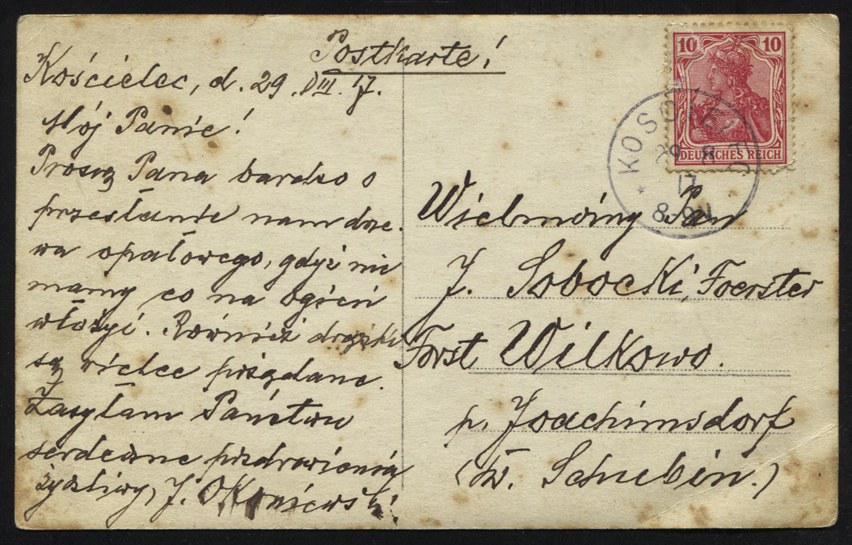 Postkarte!
Kościelec, d. 29. VIII. 17.
Mój Panie!
Proszę Pana bardzo o
przesłanie nam drze-
wa opałowego, gdyż nie
mamy co na ogień
włożyć. Również drążki
są wielce pożądane.
Zasyłam Państwu
serdeczne pozdrowienia
życzliwy, J. Okoniewski.
10 10
DEUTSCHES REICH
29 8
17
8-9N
Wielmożny Pan
J. Sobocki, Foerster
Forst Wilkowo.
p. Joachimsdorf
(Kr. Schubin.)